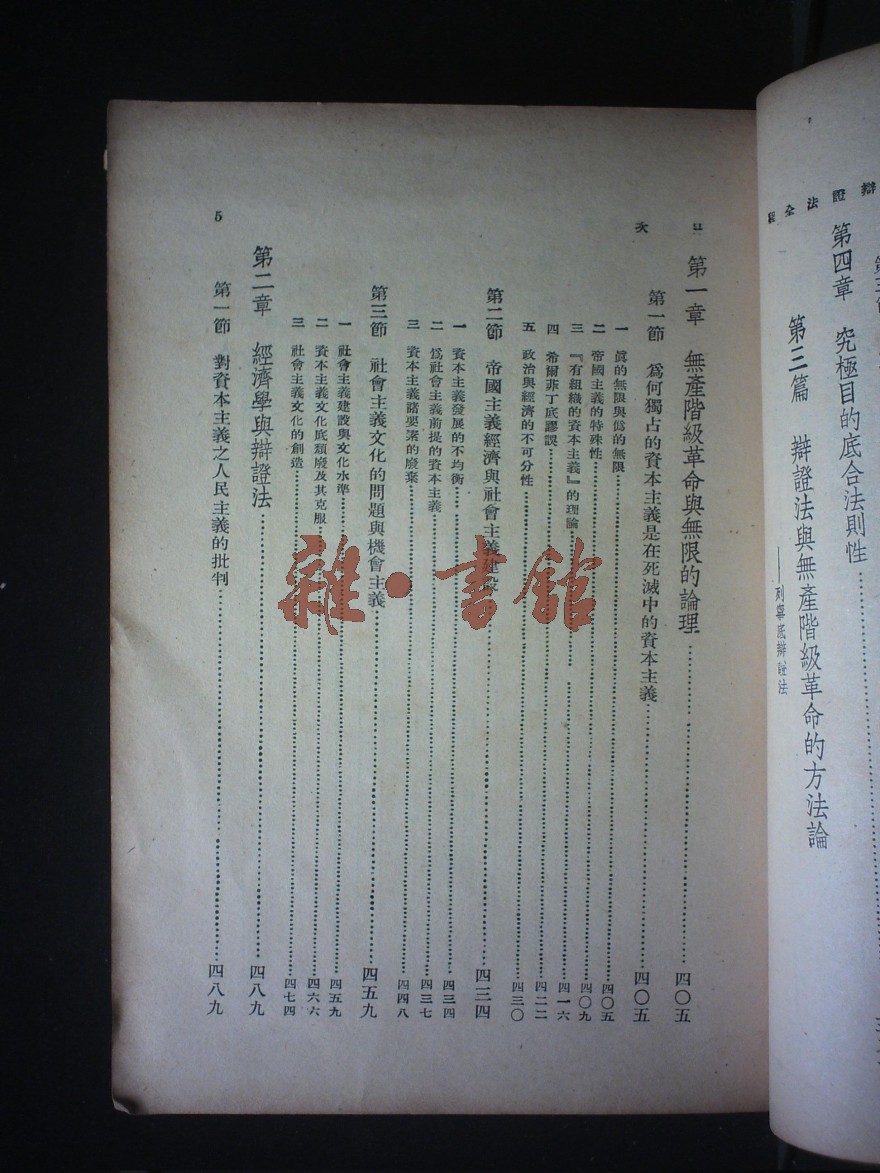 辯證法全程
第四章 究極目的底合法則性
第三篇 辯證法與無產階級革命的方法論
——列寧底辯證法
目次
第一章 無產階級革命與無限的論理 四〇五
第一節 爲何獨占的資本主義是在死滅中的資本主義 四〇五
一 眞的無限與僞的無限 四〇五
二 帝國主義的特殊性 四〇九
三 『有組織的資本主義』的理論 四一六
四 希爾菲丁底謬誤 四二二
五 政治與經濟的不可分性 四三〇
第二節 帝國主義經濟與社會主義建設 四三四
一 資本主義發展的不均衡 四三四
二 爲社會主義前提的資本主義 四三七
三 資本主義諸要素的廢棄 四四八
第三節 社會主義文化的問題與機會主義 四五九
一 社會主義建設與文化水準 四五九
二 資本主義文化底頹廢及其克服 四六六
三 社會主義文化的創造 四七四
第二章 經濟學與辯證法 四八九
第一節 對資本主義之人民主義的批判 四八九
5
雜·書館